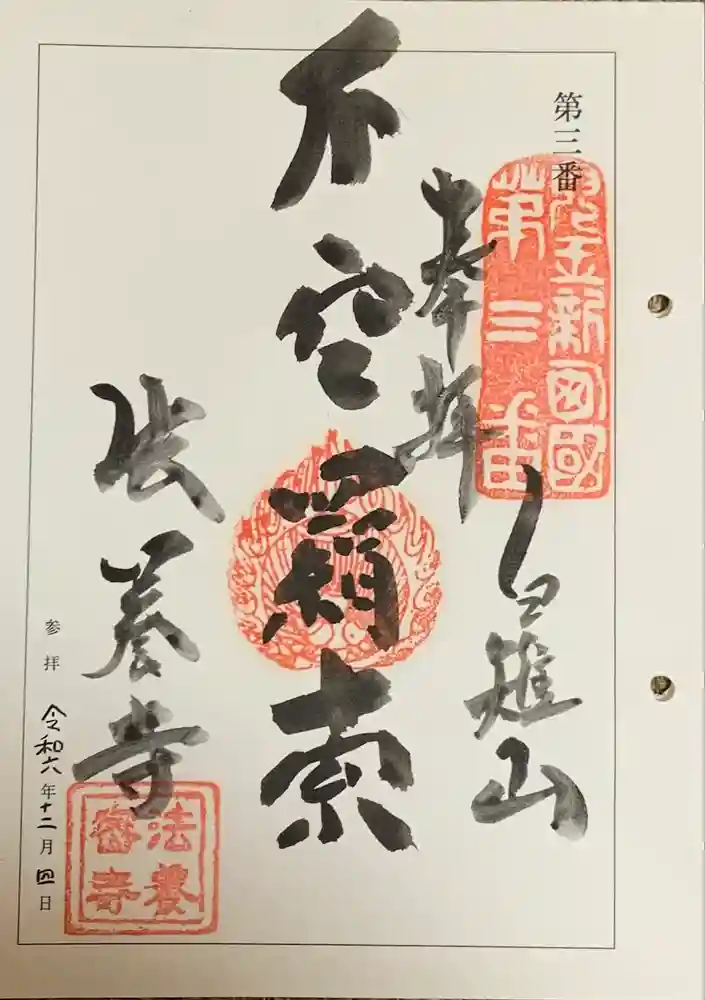 第三番
児玉新西國
第三番
奉拝
白雉山
不空羂索
法養寺
参拝 令和六年十二月四日